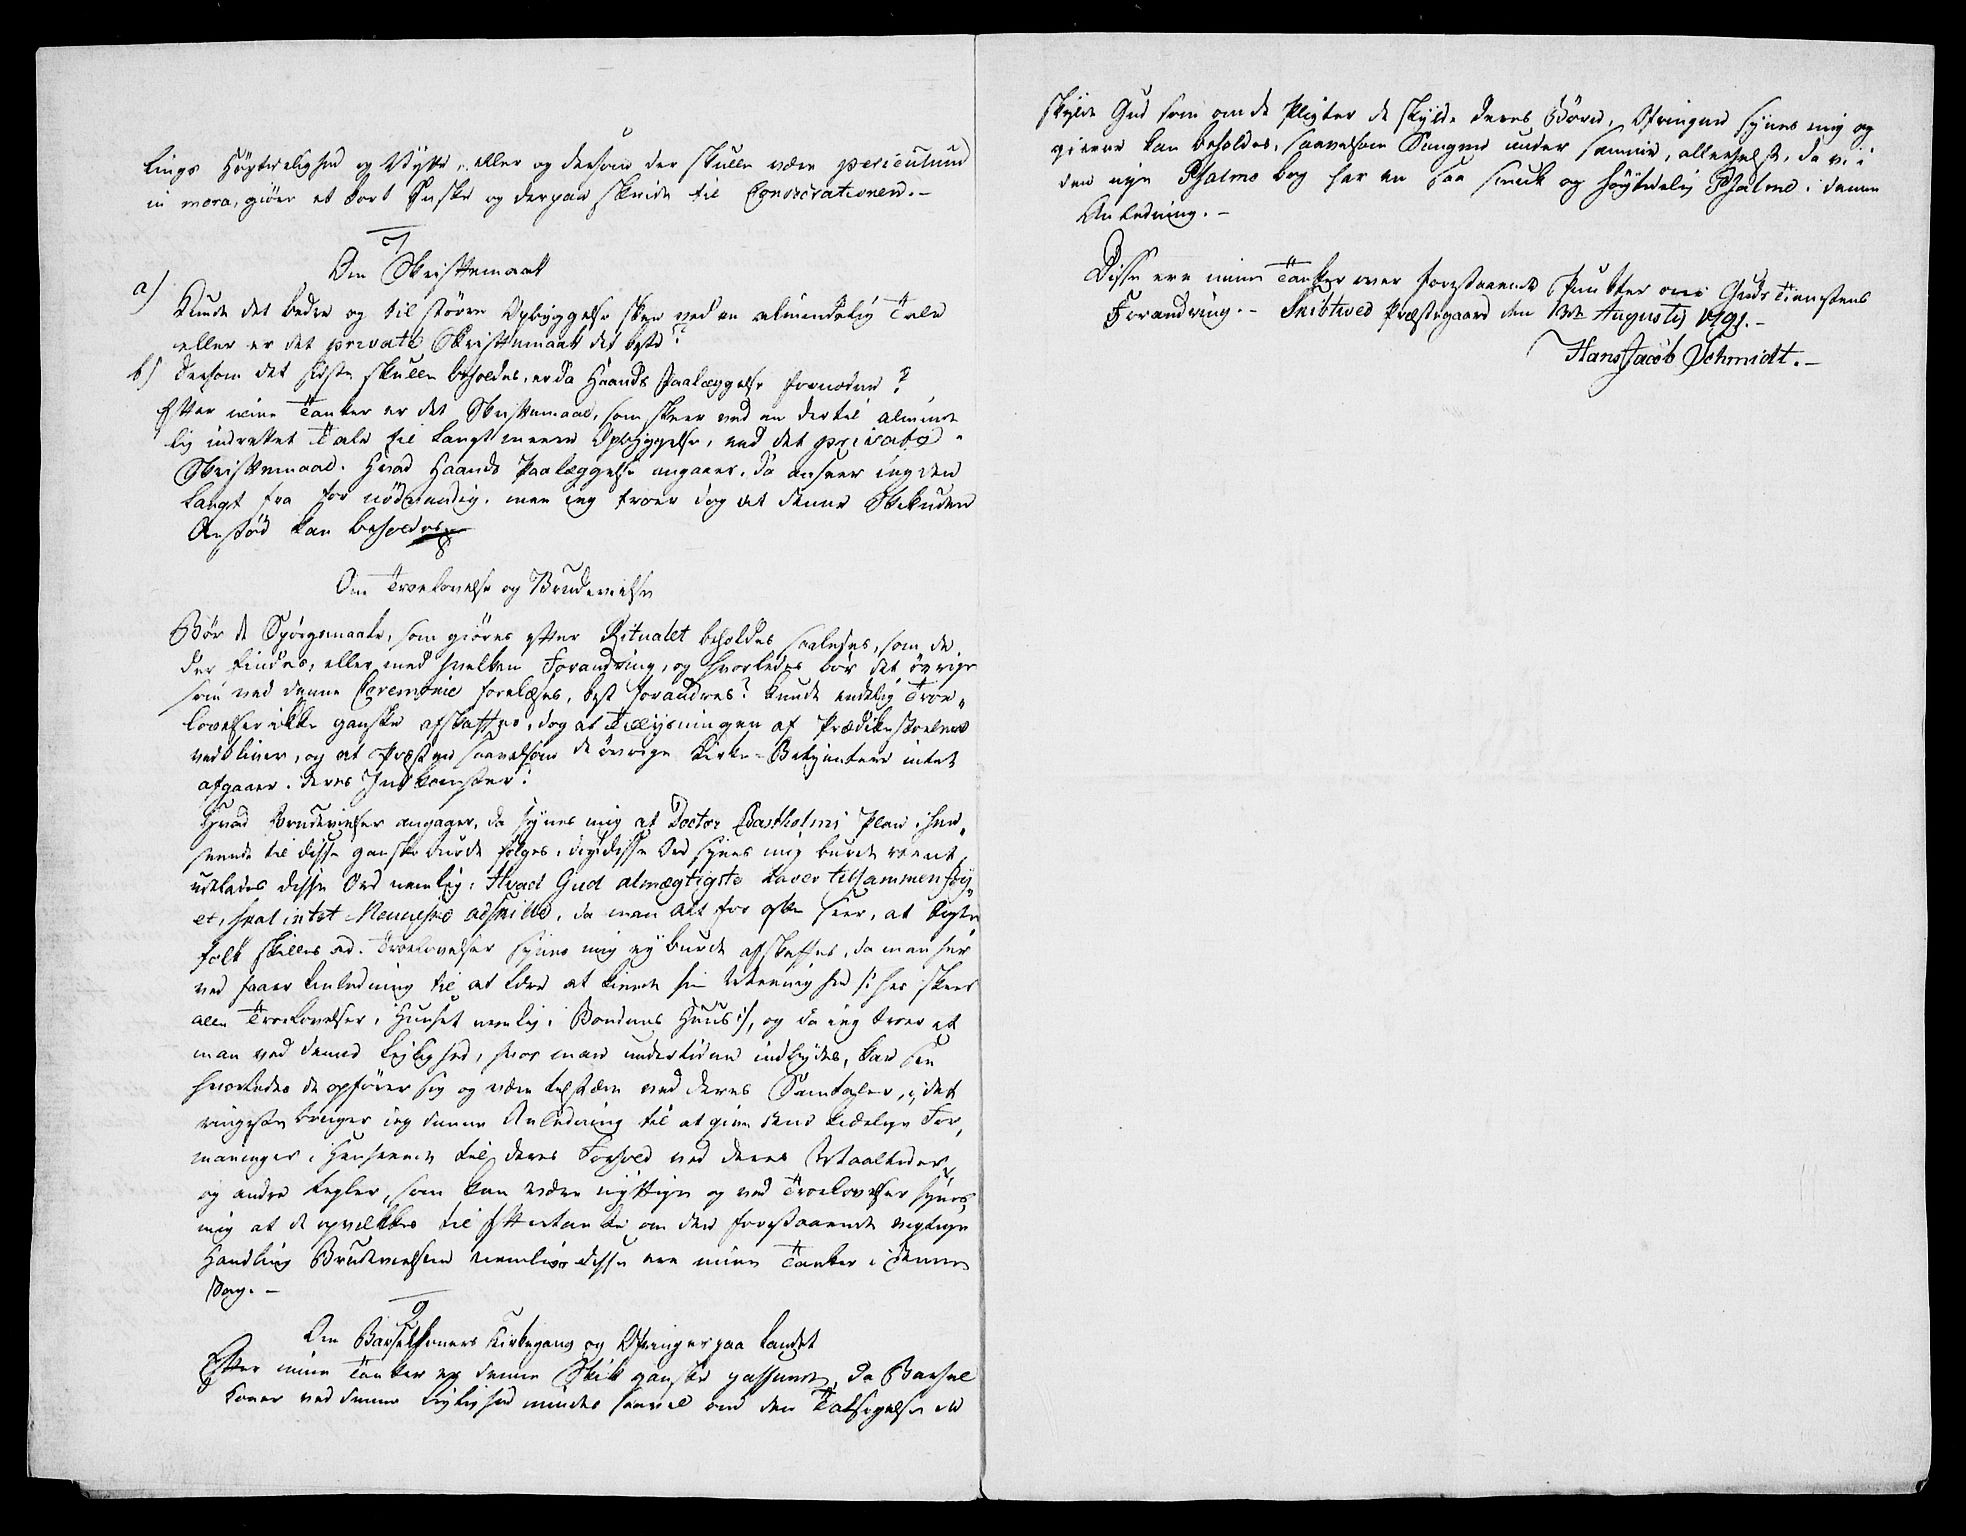 lings Høytidelighed og Nytte, eller og dersom der skulle være periculum
in mora, giør et kort Ønske og derpaa skrider til Consecrationen.-
7
Om Skriftemaal
a) Kunde det bedre og til større Opbyggelse skee ved en almindelig Tale
eller er det private Skriftemaal det beste?
b) Dersom det sidste skulle beholdes, er da Haands Paalæggelse fornøden?
Efter mine Tanker er det Skriftemaal, som skeer ved en dertil alminde
lig indrettet Tale til langt meere Opbyggelse, end det private
Skriftemaal. Hvad Haands Paalæggelse angaaer, da anseer jeg den
langt fra for nødvendig, men jeg troer dog at denne Skik uden
Anstød kan beholdes
8
Om Troelovelse og Brudevielse
Bør de Spørgsmaale, som giøres efter Ritualet beholdes saaledes, som de
der findes, eller med hvilken Forandring, og hvorledes bør det øvrige
som ved denne Ceremonie forelæses, best forandres? Kunde endelig Troe„
lovelser ikke ganske afskaffes, dog at Tillysningen af Prædikestoelene
vedbliver, og at Præsten saavelsom de øvrige Kirke-Betienter intet
afgaaer i deres Indkomster?
Hvad Brudevielser angaaer, da synes mig at Doctor Bastholms Plan i Hen„
seende til disse ganske burde følges, dog disse Ord synes mig burde reent
udelades disse Ord nemlig: Hvad Gud almægtigste haver tilsammenføy„
et, skal intet Menneske adskille, da man alt for ofte seer, at Ægte
folk skilles ad. Troelovelser synes mig ey burde afskaffes, da man her
ved faaer Anledning til at lære at kiende sin Meenighed /: her skeer
alle Troelovelser i Huuset nemlig i Bondens Huus :/, og da jeg troer at
man ved denne Leylighed, hvor man undertiden indbydes, kan see
hvorledes de opfører sig og være tilstæde ved deres Samtaler, i det
ringeste bruger jeg denne Anledning til at give dem kiærlige For„
maninger i Henseende til deres Forhold ved deres Maaltider,
og andre Regler, som kan være nyttige og ved Troelovelser synes
mig at de opvækkes til Eftertanke om den forestaaende vigtige
Handling Brudevielsen nemlig disse ere mine Tanker i denne
Sag.-
9
Om Barselkoners Kirkegang og Ofringer paa Landet
Efter mine Tanker er denne Skik ganske passende, da Barsel
koner ved denne Leylighed mindes saavel om den Taksigelse de
skylde Gud som om de Pligter de skylde deres Børn, Ofringen synes mig og
gierne kan beholdes, saavelsom Sangen under samme, allerhelst, da vi i
den nye Psalmebog har en saa smuk og høytidelig Psalme i denne
Anledning.-
Disse ere mine Tanker over forestaaende Puncter om Guds Tienestens
Forandring.- Snibtved Præstegaard den 13de Augustij 1791.-
Hans Jacob Schmidt.-